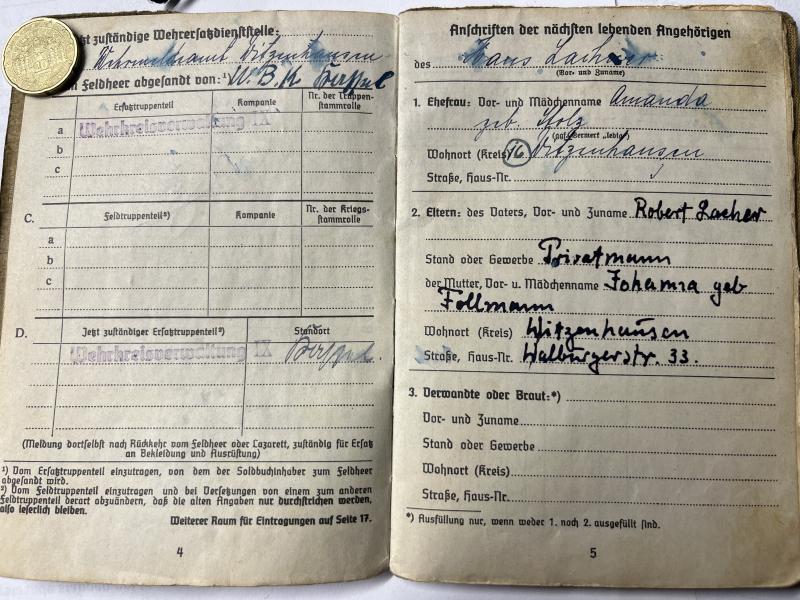 tzt zuständige Wehrersatzdienststelle:
Wehrmeldeamt Witzenhausen
Feldheer abgesandt von:¹) W.B.K
Ersatztruppenteil Kompanie Nr. der Truppen-
stammrolle
a Wehrkreisverwaltung IX
b
c
C. Feldtruppenteil²) Kompanie Nr. der Kriegs-
stammrolle
a
b
c
D. Jetzt zuständiger Ersatztruppenteil²) Standort
Wehrkreisverwaltung IX
(Meldung dortselbst nach Rückkehr vom Feldheer oder Lazarett, zuständig für Ersatz
an Bekleidung und Ausrüstung)
¹) Vom Ersatztruppenteil einzutragen, von dem der Soldbuchinhaber zum Feldheer
abgesandt wird.
²) Vom Feldtruppenteil einzutragen und bei Versetzungen von einem zum anderen
Feldtruppenteil derart abzuändern, daß die alten Angaben nur durchstrichen werden,
also leserlich bleiben.
Weiterer Raum für Eintragungen auf Seite 17.
4
Anschriften der nächsten lebenden Angehörigen
des Hans Lacher
(Vor- und Zuname)
1. Ehefrau: Vor- und Mädchenname Amanda
geb.
(ggf. Vermerk „ledig“)
Wohnort (Kreis) (16) Witzenhausen
Straße, Haus-Nr.
2. Eltern: des Vaters, Vor- und Zuname Robert Lacher
Stand oder Gewerbe Privatmann
der Mutter, Vor- u. Mädchenname Johanna geb
Follmann
Wohnort (Kreis) Witzenhausen
Straße, Haus-Nr. Walburgerstr. 33.
3. Verwandte oder Braut:*)
Vor- und Zuname
Stand oder Gewerbe
Wohnort (Kreis)
Straße, Haus-Nr.
*) Ausfüllung nur, wenn weder 1. noch 2. ausgefüllt sind.
5